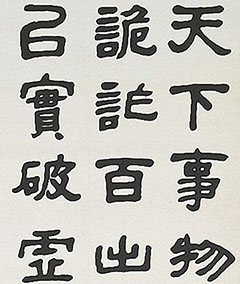 天下事物
詭詐百出
㠯實破虛